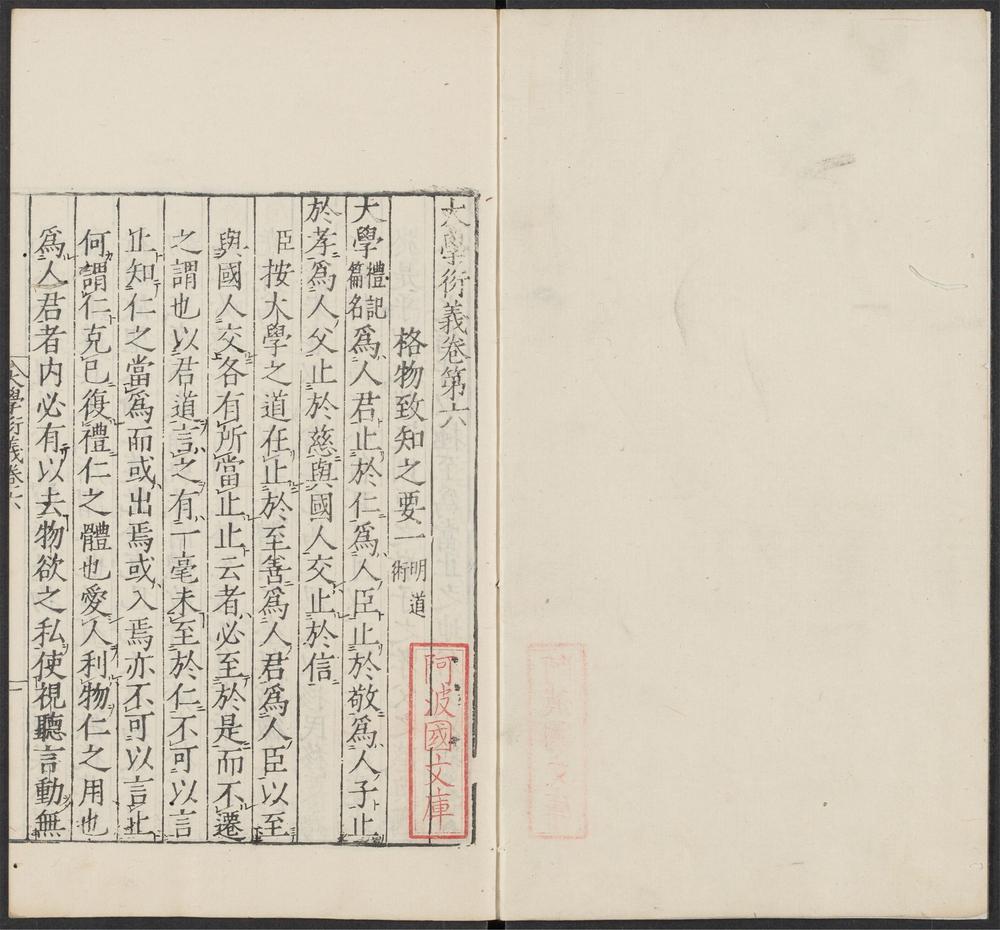 大學衍義卷第六
格物致知之要一明道術
大學禮記篇名爲人君止於仁爲人臣止於敬爲人子止
於孝爲人父止於慈與國人交止於信
臣按大學之道在止於至善爲人君爲人臣以至
與國人交各有所當止止云者必至於是而不遷
之謂也以君道言之有一毫未至於仁不可以言
止知仁之當爲而或出焉或入焉亦不可以言止
何謂仁克己復禮仁之體也愛人利物仁之用也
爲人君者内必有以去物欲之私使視聽言動無
大學衍義卷六
一
阿波國文庫